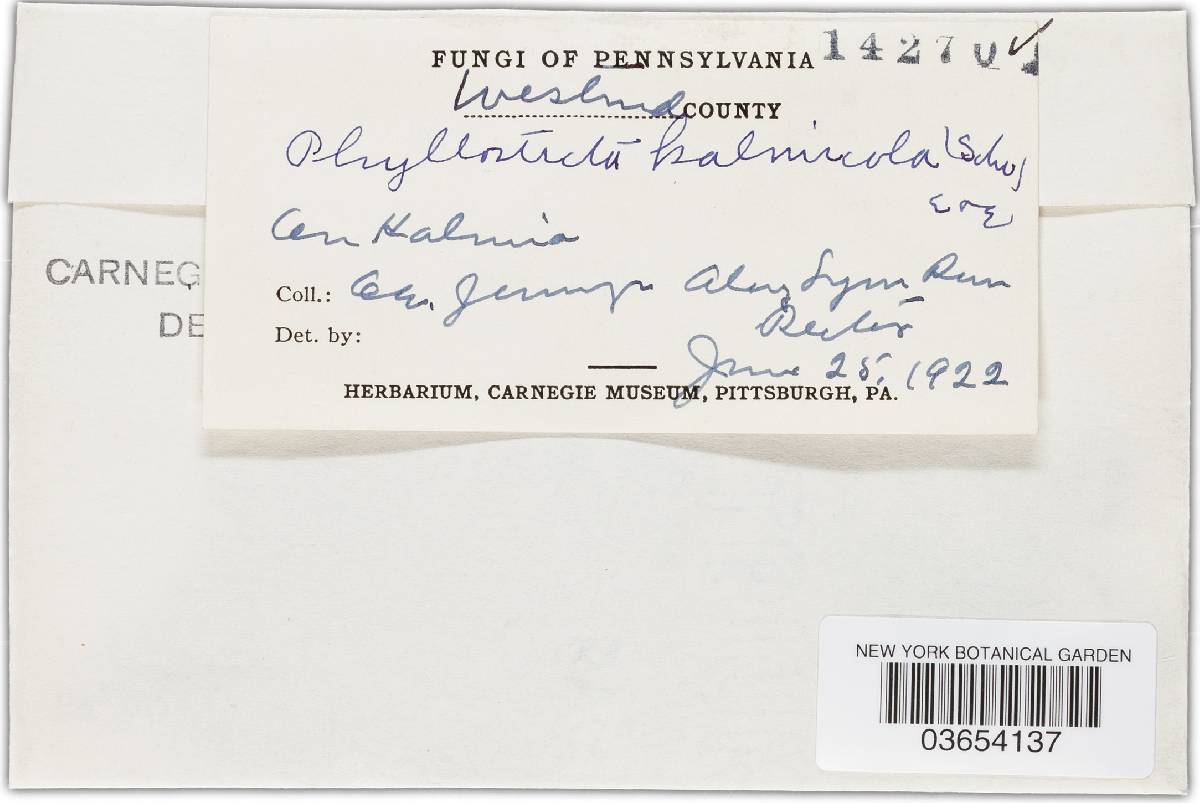 FUNGI OF PENNSYLVANIA
Westmd COUNTY
Phyllosticta kalmicola (Schw)
E & E
On Kalmia
Coll.: O.E. Jennings Along Lynn Run
Rector
Det. by:
June 25, 1922
HERBARIUM, CARNEGIE MUSEUM, PITTSBURGH, PA.
CARNEG
DE
NEW YORK BOTANICAL GARDEN
03654137